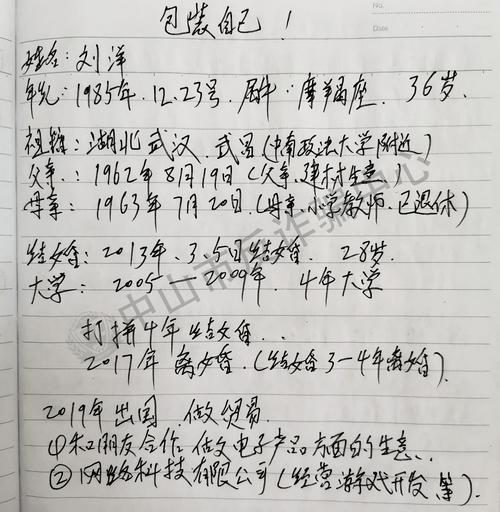 No.
Date
包装自己！
姓名：刘洋
年纪：1985年.12.23号.属牛.摩羯座.36岁.
祖籍：湖北武汉.武昌(中南政法大学附近)
父亲：1962年8月19日(父亲.建材生意)
母亲：1963年7月20日.(母亲.小学教师.已退休)
结婚：2013年.3.5日结婚.28岁.
大学：2005—2009年.4年大学
打拼4年结婚...
2017年离婚.(结婚3-4年离婚).
2019年出国做贸易.
①和朋友合作做电子产品方面的生意..
②网络科技有限公司(经营游戏开发等).
中山市反诈骗中心